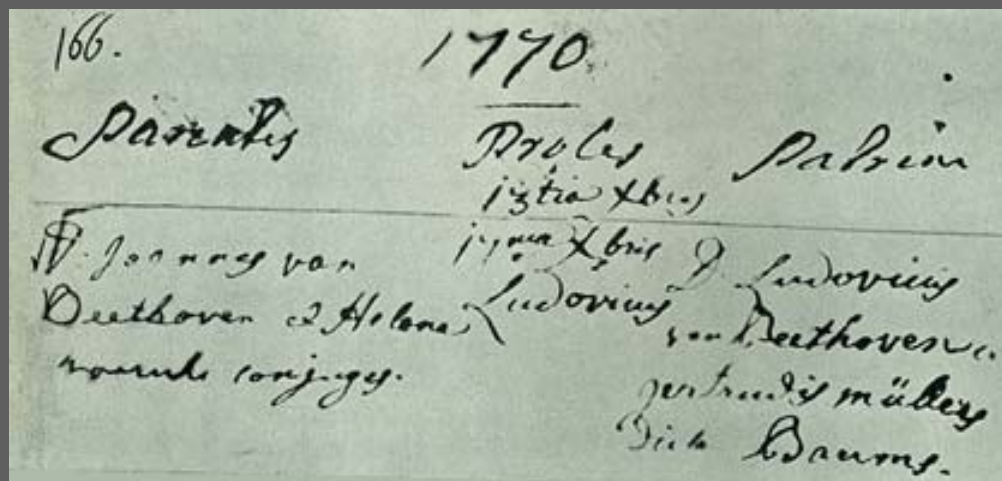 166.
1770.
Parentes Proles Patrini
13tia Xbris
D. Joannes van
Beethoven & Helena
conjuges.
17ma Xbris
Ludovicus
D. Ludovicus
van Beethoven &
gertrudis müllers
dicta Baums.